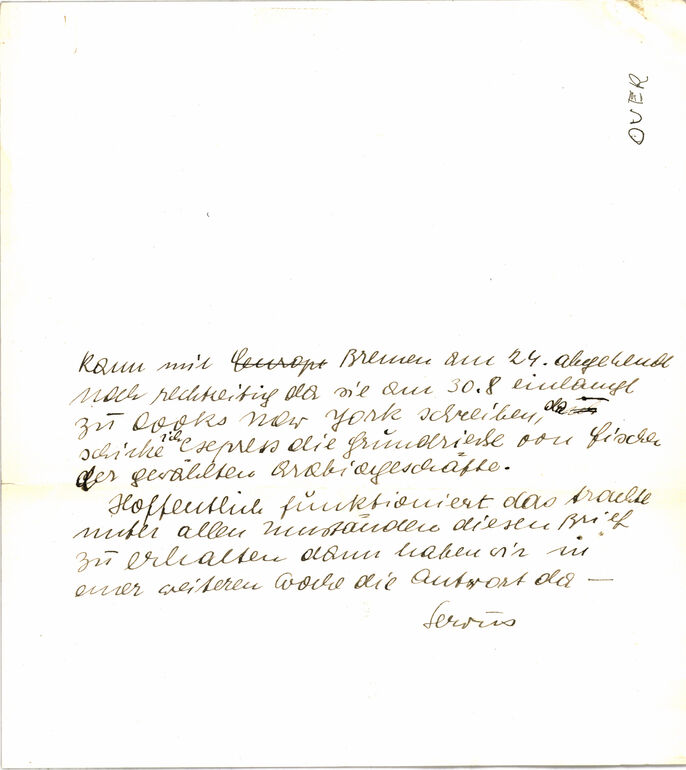 OVER
Kann mit Europe Bremen am 24. abgehend
noch rechtzeitig da sie am 30.8 einlangt
zu Cooks New York schreiben, da
schicke ich express die Grundrisse von Fischer
der gewählten Arabiageschäfte.
Hoffentlich funktioniert das trachte
unter allen Umständen diesen Brief
zu erhalten dann haben wir in
einer weiteren Woche die Antwort da —
Servus